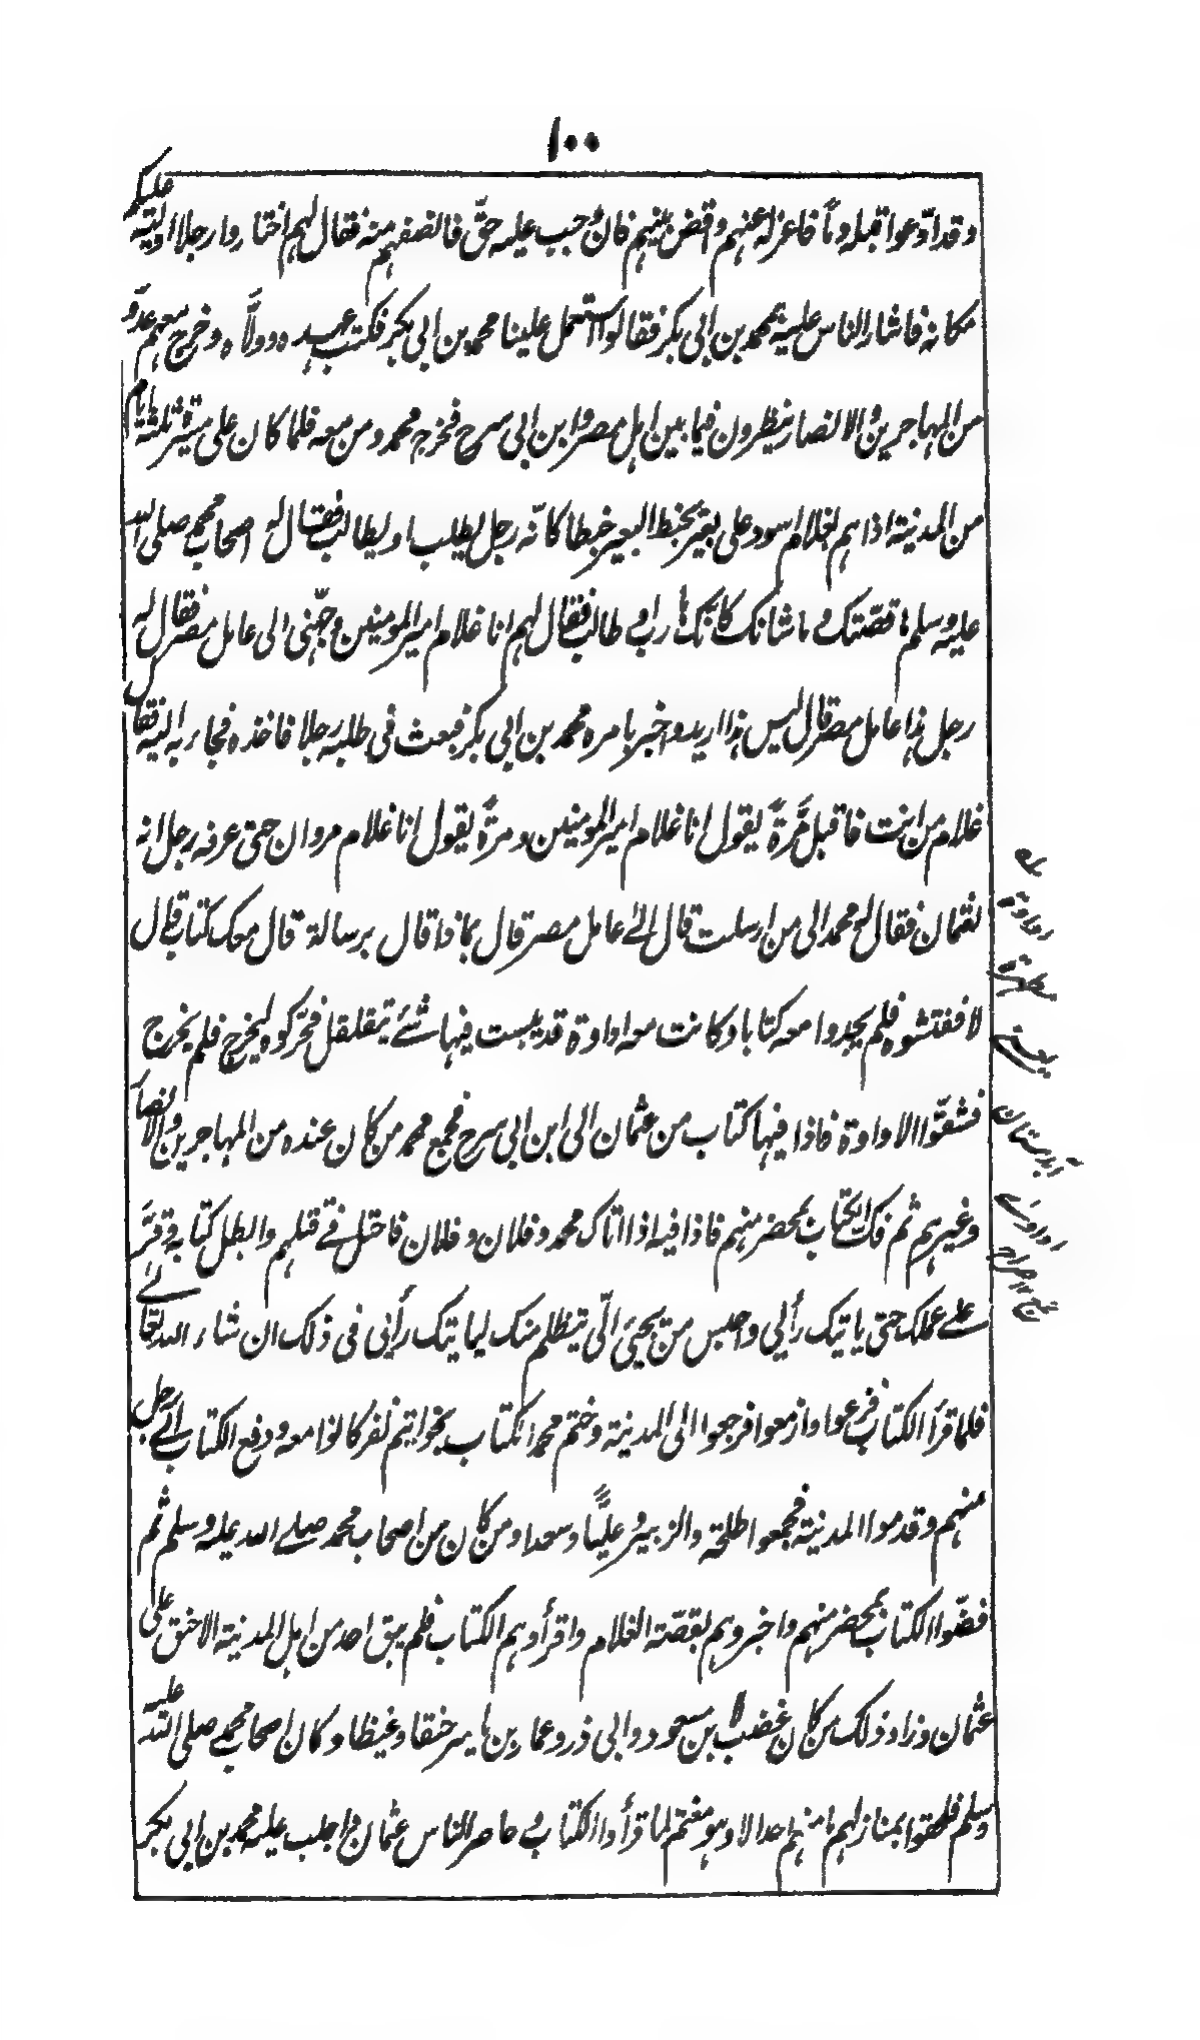 ١٠٠
وقد ادّعوا قبله دماً فاعزله عنهم واقض بينهم فان وجب عليه حقّ فانصفهم منه فقال لهم اختاروا رجلا اولّيه عليكم
مكانه فاشار الناس عليه بمحمد بن ابي بكر فقالوا استعمل علينا محمد بن ابي بكر فكتب عهده وولّاه وخرج معهم عدد
من المهاجرين والانصار ينظرون فيما بين اهل مصر وابن ابي سرح فخرج محمد ومن معه فلما كان على مسيرة ثلثة ايام
من المدينة اذا هم بغلام اسود على بعير يخبط البعير خبطا كانّه رجل يطلب او يطالب فقال له اصحاب محمد صلى الله
عليه وسلم ما قصّتك وما شانك كانّك هارب او طالب فقال لهم انا غلام امير المومنين وجّهني الى عامل مصر فقال له
رجل هذا عامل مصر قال ليس هذا اريد واخبر بامره محمد بن ابي بكر فبعث في طلبه رجلا فاخذه فجاء به اليه فقال
غلام من انت فاقبل مرّةً يقول انا غلام امير المومنين ومرّةً يقول انا غلام مروان حتى عرفه رجل انه
لعثمان فقال له محمد الى من ارسلت قال الى عامل مصر قال بماذا قال برسالة قال معك كتاب قال
لا ففتشوه فلم يجدوا معه كتابا وكانت معه اداوة قد يبست فيها شئ يتقلقل فحرّكوه ليخرج فلم يخرج
فشقّوا الاداوة فاذا فيها كتاب من عثمان الى ابن ابي سرح فجمع محمد من كان عنده من المهاجرين والانصار
وغيرهم ثم فك الكتاب بمحضر منهم فاذا فيه اذا اتاك محمد وفلان وفلان فاحتل في قتلهم وابطل كتابه وقرّ
على عملك حتى ياتيك رأيي واحبس من يجيئ اليّ يتظلم منك لياتيك رأيي في ذلك ان شاء الله تعالى
فلما قرأ الكتاب فزعوا وازمعوا فرجعوا الى المدينة وختم محمد الكتاب بخواتيم نفر كانوا معه ودفع الكتاب الى رجل
منهم وقدموا المدينة فجمعوا طلحة والزبير وعليّاً وسعدا ومن كان من اصحاب محمد صلى الله عليه وسلم ثم
فضّوا الكتاب بمحضر منهم واخبروهم بقصّة الغلام واقرأوهم الكتاب فلم يبق احد من اهل المدينة الا حنق على
عثمان وزاد ذلك من كان غضب لابن مسعود وابي ذر وعمار بن ياسر حنقا وغيظا وكان اصحاب محمد صلى الله عليه
وسلم فلحقوا بمنازلهم ما منهم احد الا وهو مغتم لما قرأوا الكتاب وحاصر الناس عثمان واجلب عليه محمد بن ابي بكر